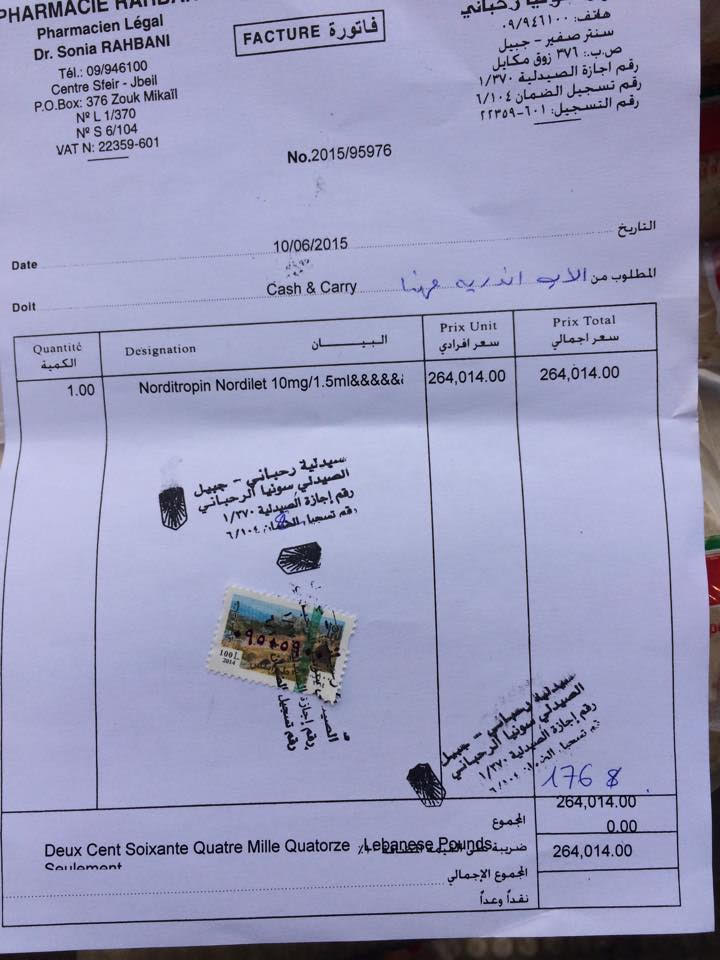 PHARMACIE RAHBANI
Pharmacien Légal
Dr. Sonia RAHBANI
Tél.: 09/946100
Centre Sfeir - Jbeil
P.O.Box: 376 Zouk Mikaïl
Nº L 1/370
Nº S 6/104
VAT N: 22359-601
FACTURE فاتورة
سونيا رحباني
هاتف: ٠٩/٩٤٦١٠٠
سنتر صفير - جبيل
ص.ب.: ٣٧٦ زوق مكايل
رقم اجازة الصيدلية ١/٣٧٠
رقم تسجيل الضمان ٦/١٠٤
رقم التسجيل: ٦٠١-٢٢٣٥٩
No.2015/95976
Date 10/06/2015 التاريخ
Doit Cash & Carry المطلوب من الاب اندريه مهنا
Quantité الكمية
Designation البيان
Prix Unit سعر افرادي
Prix Total سعر اجمالي
1.00 Norditropin Nordilet 10mg/1.5ml&&&&& 264,014.00 264,014.00
صيدلية رحباني - جبيل
الصيدلي سونيا الرحباني
رقم إجازة الصيدلية ١/٣٧٠
رقم تسجيل الضمان ٦/١٠٤
100
2014
رقم إجازة
رقم تسجيل
صيدلية رحباني - جبيل
الصيدلي سونيا الرحباني
رقم إجازة الصيدلية ١/٣٧٠
رقم تسجيل الضمان ٦/١٠٤
176 $
المجموع 264,014.00
0.00
Deux Cent Soixante Quatre Mille Quatorze Lebanese Pounds
ضريبة على القيمة المضافة ١٠٪ 264,014.00
Seulement
المجموع الإجمالي
نقداً وعداً